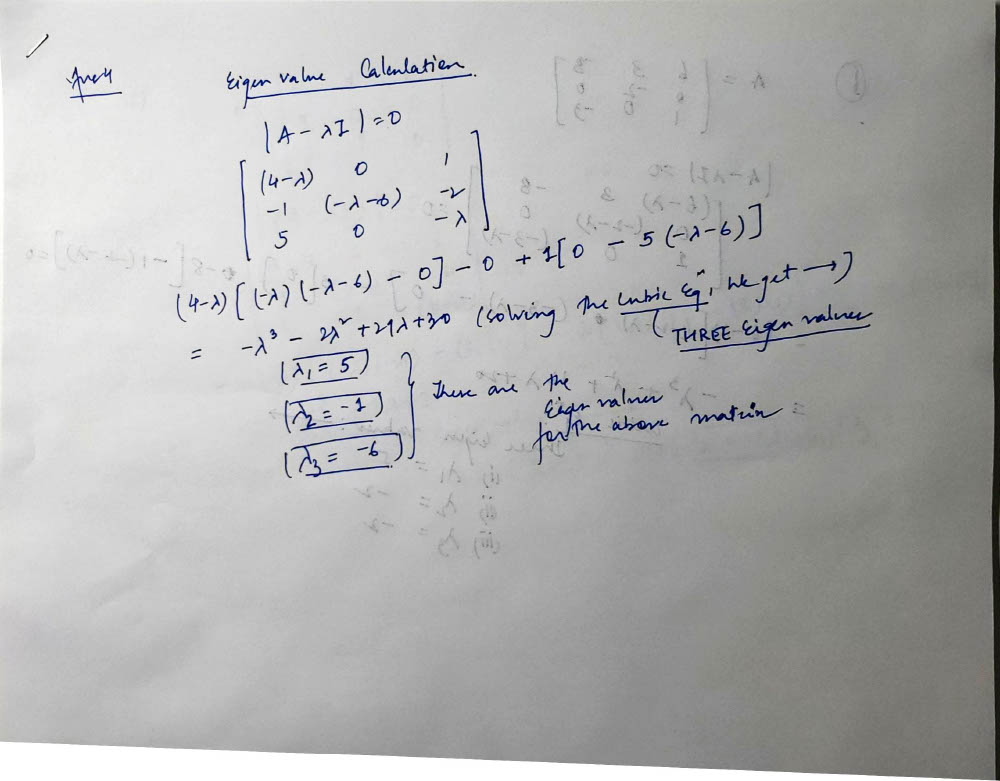 Ans 4
Eigen value Calculation.
|A - λI| = 0
(4-λ) 0 1
-1 (-λ-6) -2
5 0 -λ
(4-λ)[(-λ)(-λ-6) - 0] - 0 + 1[0 - 5(-λ-6)]
= -λ³ - 2λ² + 29λ + 30 (solving the cubic Eqⁿ, we get →)
(THREE Eigen values
λ₁ = 5
λ₂ = -1
λ₃ = -6
These are the
Eigen values
for the above matrix